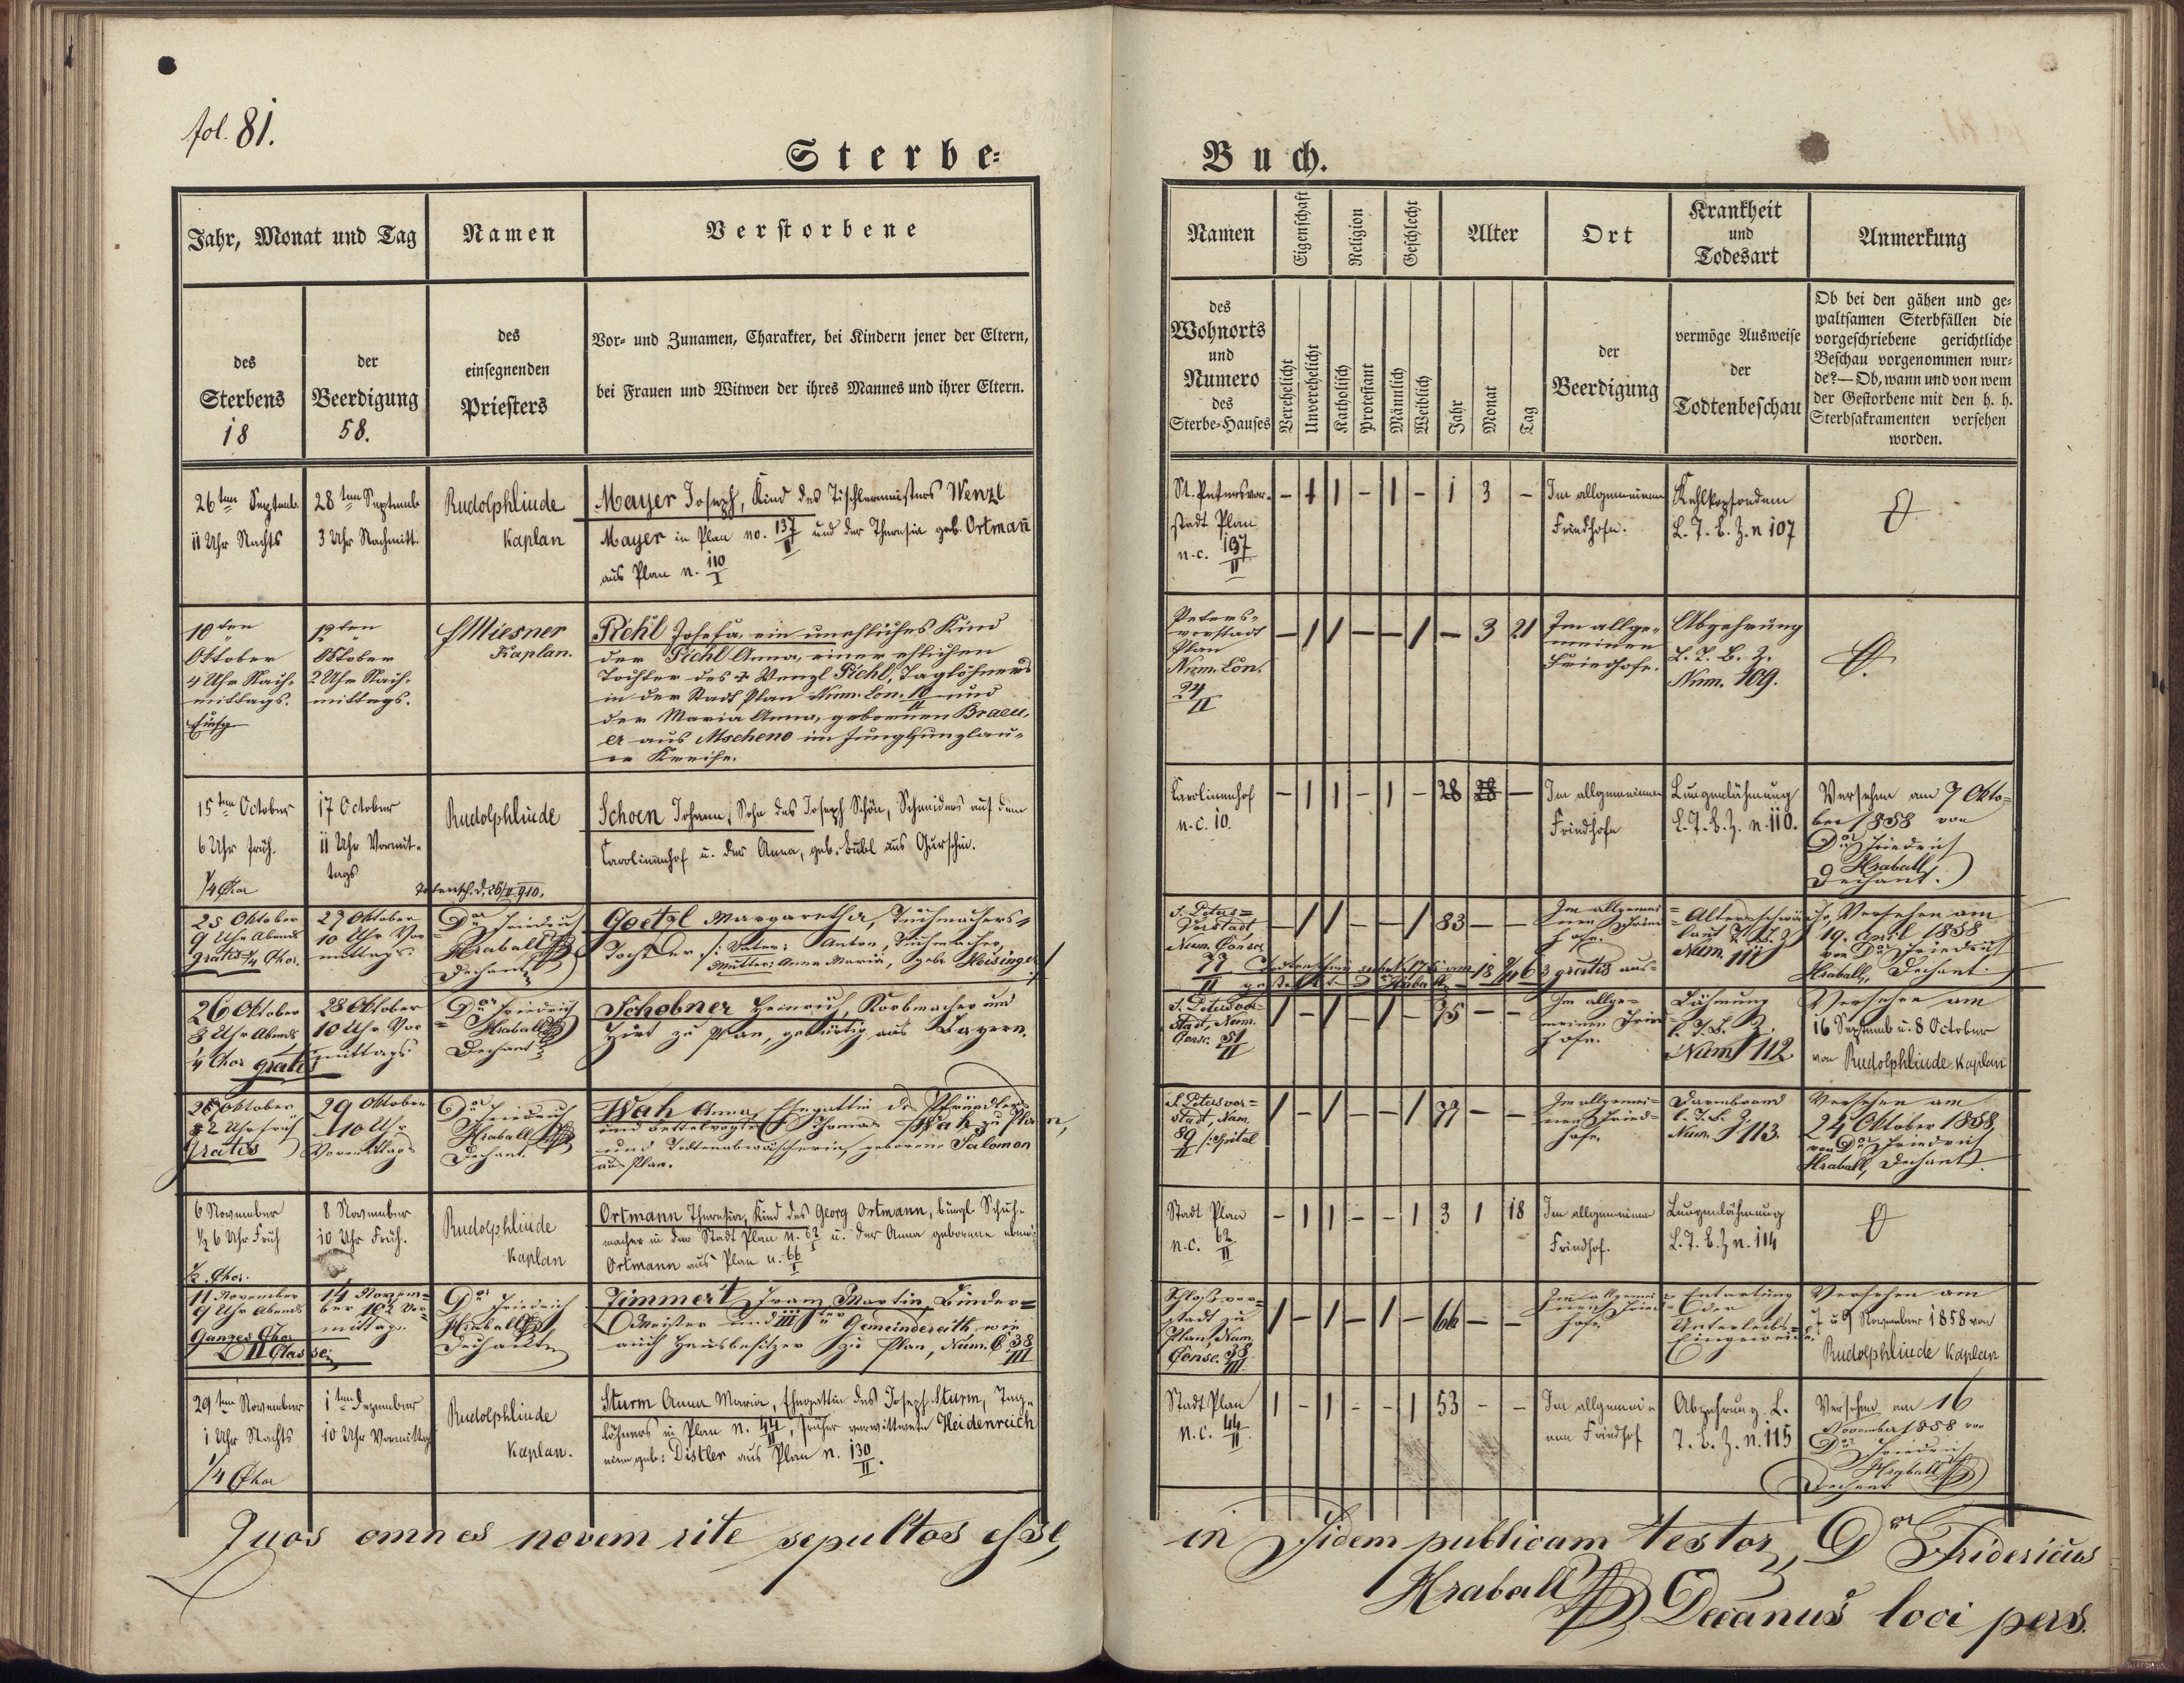 fol. 81.
Sterbe=
Buch.
Jahr, Monat und Tag
Namen
Verstorbene
des
Sterbens
18
der
Beerdigung
58.
des
einsegnenden
Priesters
Vor- und Zunamen, Charakter, bei Kindern jener der Eltern,
bei Frauen und Witwen der ihres Mannes und ihrer Eltern.
Namen
Eigenschaft
Religion
Geschlecht
Alter
Ort
Krankheit
und
Todesart
Anmerkung
des
Wohnorts
und
Numero
des
Sterbe=Hauses
Verehelicht
Unverehelicht
Katholisch
Protestant
Männlich
Weiblich
Jahr
Monat
Tag
der
Beerdigung
vermöge Ausweise
der
Todtenbeschau
Ob bei den gähen und ge=
waltsamen Sterbfällen die
vorgeschriebene gerichtliche
Beschau vorgenommen wur=
de?—Ob, wann und von wem
der Gestorbene mit den h. h.
Sterbsakramenten versehen
worden.
26ten Septemb.
11 Uhr Nachts
28ten Septemb
3 Uhr Nachmitt.
Rudolph Linde
Kaplan
Mayer Joseph, Kind des Tischlermeisters Wenzl
Mayer in Plan no. 137/II und der Theresia geb. Ortmañ
aus Plan n. 110/I
St. Petersvor-
stadt Plan
n.c. 137/II
- 1 1 - 1 - 1 3 -
Im allgemeinen
Friedhofe.
L. T. B. Z. n 107
10ten
Oktober
4 Uhr Nach=
mittags.
12ten
Oktober
2 Uhr Nach=
mittags.
Miesner
Kaplan.
Pichl Josefa, ein unehliches Kind
der Pichl Anna, einer ehlichen
Tochter des + Wenzl Pichl, Taglöhners
in der Stadt Plan Num. Con. 10/II und
der Maria Anna, gebornen Braeu=
er aus Mscheno im Jungbunzlau=
er Kreise.
Peters=
vorstadt
Plan
Num. Con.
24/II
- 1 1 - - 1 - 3 21
Im allge=
meinen
Friedhofe.
Abzehrung
L. T. B. Z.
Num. 109.
15ten October
6 Uhr früh.
1/4 Chor
17 October
11 Uhr Vormit-
tags
Rudolph Linde
Schoen Johann, Sohn des Joseph Schön, Schneiders auf dem
Carolinenhof u. der Anna, geb. aus
Karolinenhof
n.c. 10.
- 1 1 - 1 - 28 28 -
Im allgemeinen
Friedhofe
Lungenlähmung
L. T. B. Z. n. 110.
Versehen am 7 Okto=
ber 1858 von
Dor Friedrich
Hraball
Dechant.
25 Oktober
9 Uhr Abends
gratis 1/4 Chor.
27 Oktober
10 Uhr Vor=
mittags.
Dor Friedrich
Hraball
Dechant
Goetzl Margaretha, Tuchmachers=
Tochter /: Vater: Anton, Tuchmacher,
Mutter: Anna Maria, geb. Hoisinger /
S. Peters=
Vorstadt
Num. Consc.
- 1 1 - - 1 83 - -
Im allgemei=
nen Fried=
hofe.
Altersschwäche,
laut T. B. Z
Num. 111
Versehen am
19. April 1858
von Dor Friedrich
Hraball, Dechant.
26 Oktober
8 Uhr Abends
1/4 Chor gratis
28 Oktober
10 Uhr Vor=
mittags.
Dor Friedrich
Hraball
Dechant
Schobner Heinrich, Korbmacher und
Hirt zu Plan, gebürtig aus Bayern.
S. Petersvor=
stadt, Num.
Consc. 51/II
1 - 1 - 1 - 75 - -
Im allge=
meinen Fried=
hofe.
Lähmung
l. T. B. Z.
Num. 112
Versehen am
16 Septemb u. 8 October
von Rudolph Linde Kaplan
27 Oktober
2 Uhr früh
Gratis
29 Oktober
10 Uhr
Vormittags
Dor Friedrich
Hraball
Dechant.
Wah Anna, Ehegattin des Pfründlers
und Bettelvogtes Thomas Wah zu Plan,
und Todtenabwäscherin, geborene Salomon
aus Plan.
S. Petersvor=
stadt, Num.
89/II /: Spital
1 - 1 - - 1 77 - -
Im allgemei=
nen Fried=
hofe.
Darmbrand
l. T. B. Z.
Num. 113.
Versehen am
24 Oktober 1858
von Dor Friedrich
Hraball, Dechant.
6 November
1/2 6 Uhr Früh
1/2 Chor.
8 November
10 Uhr Früh.
Rudolph Linde
Kaplan
Ortmann Theresia, Kind des Georg Ortmann, bürgl. Schuh-
macher in der Stadt Plan n. 62/I u. der Anna geborene
Ortmann aus Plan n. 66/I
Stadt Plan
n.c. 62/II
- 1 1 - - 1 3 1 18
Im allgemeinen
Friedhof.
Lungenlähmung
L. T. B. Z n. 114
11 November
9 Uhr Abends
Ganzes Chor
II Classe
14 Novem=
ber Vor=
mittag.
Dor Friedrich
Hraball
Dechant
Zimmert Franz Martin, Binder=
Meister und IIIter Gemeinderath, wie
auch Hausbesitzer zu Plan, Num. C 38/III
Schloßvor=
stadt zu
Plan, Num.
Consc. 38/III.
1 - 1 - 1 - 66 - -
Im allgemei=
nen Fried=
hofe
Entartung
der
Unterleibs=
Eingeweide.
Versehen am
7 u 9 November 1858 von
Rudolph Linde Kaplan
29ten November
1 Uhr Nachts
1/4 Chor
1ten Dezember
10 Uhr Vormittag
Rudolph Linde
Kaplan.
Sturm Anna Maria, Ehegattin des Joseph Sturm, Tag-
löhners in Plan n. 44/II, früher verwittwete Heidenreich
geb: Distler aus Plan n. 130/II.
Stadt Plan
n.c. 44/II
1 - 1 - - 1 53 - -
Im allgemei=
nen Friedhof
Abzehrung. L.
T. B. Z. n. 115
Versehen am 16
November 1858 von
Dor Friedrich
Hraball
Dechant
Quos omnes novem rite sepultos esse,
in Fidem publicam testor, Dor Fridericus
Hraball Decanus loci pers.